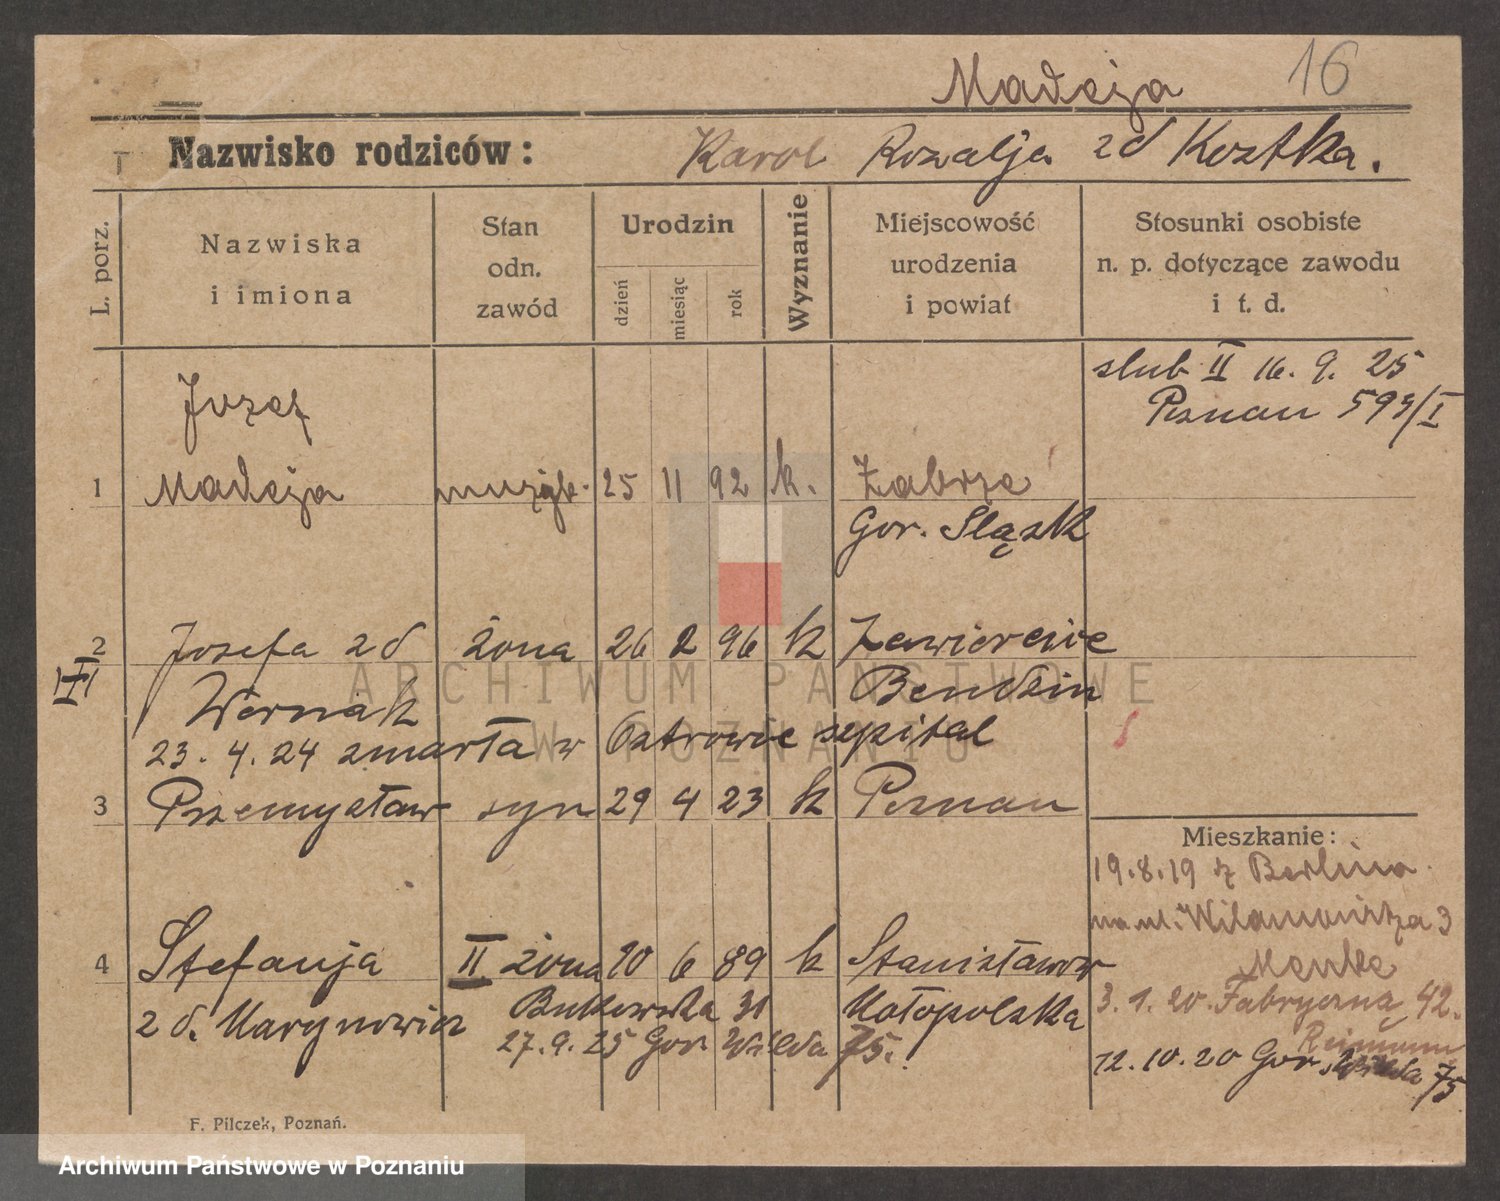 Madeja 16
Nazwisko rodziców: Karol Rozalja zd Kostka.
L. porz.
Nazwiska
i imiona
Stan
odn.
zawód
Urodzin
dzień
miesiąc
rok
Wyznanie
Miejscowość
urodzenia
i powiat
Stosunki osobiste
n. p. dotyczące zawodu
i t. d.
slub II 16. 9. 25
Poznan 593/I
Jozef
1 Madeja muzyk. 25 11 92 k. Zabrze
Gor. Sląsk
2 Josefa zd żona 26 2 96 k Zawiercie
Werniak Bendzin
23. 4. 24 zmarła w Ostrowie szpital
3 Przemysław syn 29 4 23 k Poznan
Mieszkanie:
19.8.19 z Berlina
na ul. 3
Menke
3. 1. 20. Fabryczna 42.
12.10.20 Gor. Wilda 75
4 Stefanja II żona 20 6 89 k Stanisławow
zd. Marynowicz Butkowska 31 Małopolska
27.9.25 Gor Wilda 75.
F. Pilczek, Poznań.
ARCHIWUM PAŃSTWOWE
W POZNANIU
Archiwum Państwowe w Poznaniu